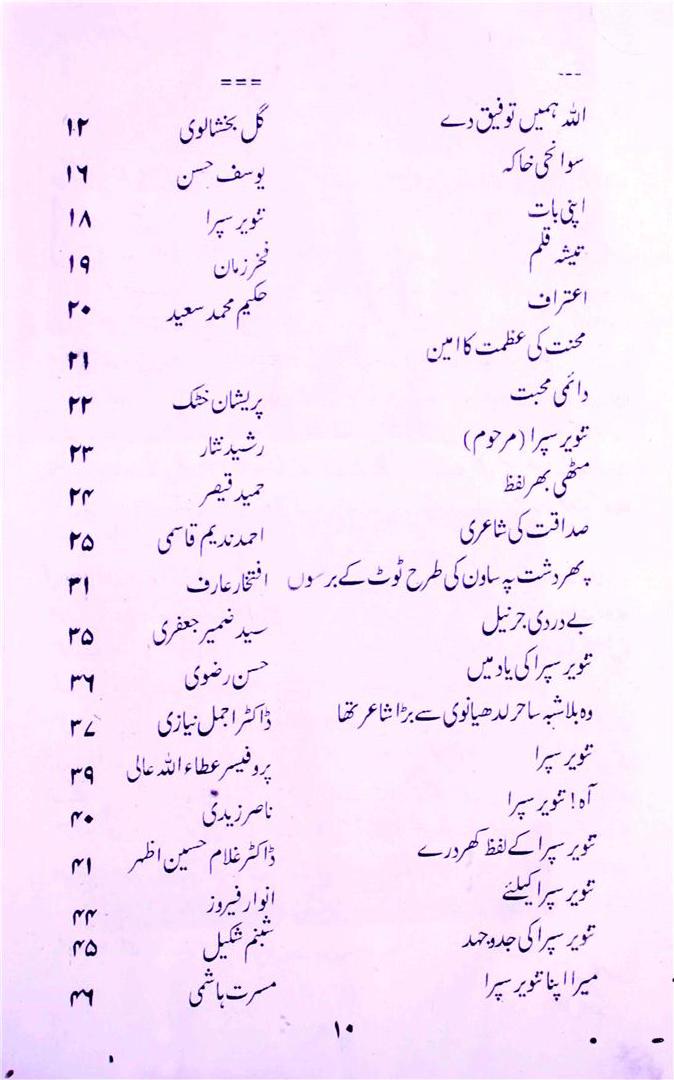 --- ===
اللہ ہمیں توفیق دے گل بخشالوی ۱۲
سوانحی خاکہ یوسف حسن ۱۶
اپنی بات تنویر سپرا ۱۸
تیشہ قلم فخر زمان ۱۹
اعتراف حکیم محمد سعید ۲۰
محنت کی عظمت کا امین ۲۱
دائمی محبت پریشان خٹک ۲۲
تنویر سپرا (مرحوم) رشید نثار ۲۳
مٹھی بھر لفظ حمید قیصر ۲۴
صداقت کی شاعری احمد ندیم قاسمی ۲۵
پھر دشت پہ ساون کی طرح ٹوٹ کے برسوں افتخار عارف ۳۱
بے دردی جرنیل سید ضمیر جعفری ۳۵
تنویر سپرا کی یاد میں حسن رضوی ۳۶
وہ بلاشبہ ساحر لدھیانوی سے بڑا شاعر تھا ڈاکٹر اجمل نیازی ۳۷
تنویر سپرا پروفیسر عطاء اللہ عالی ۳۹
آہ! تنویر سپرا ناصر زیدی ۴۰
تنویر سپرا کے لفظ کھردرے ڈاکٹر غلام حسین اظہر ۴۱
تنویر سپرا کیلئے انوار فیروز ۴۴
تنویر سپرا کی جدوجہد شبنم شکیل ۴۵
میرا اپنا تنویر سپرا مسرت ہاشمی ۴۶
۱۰